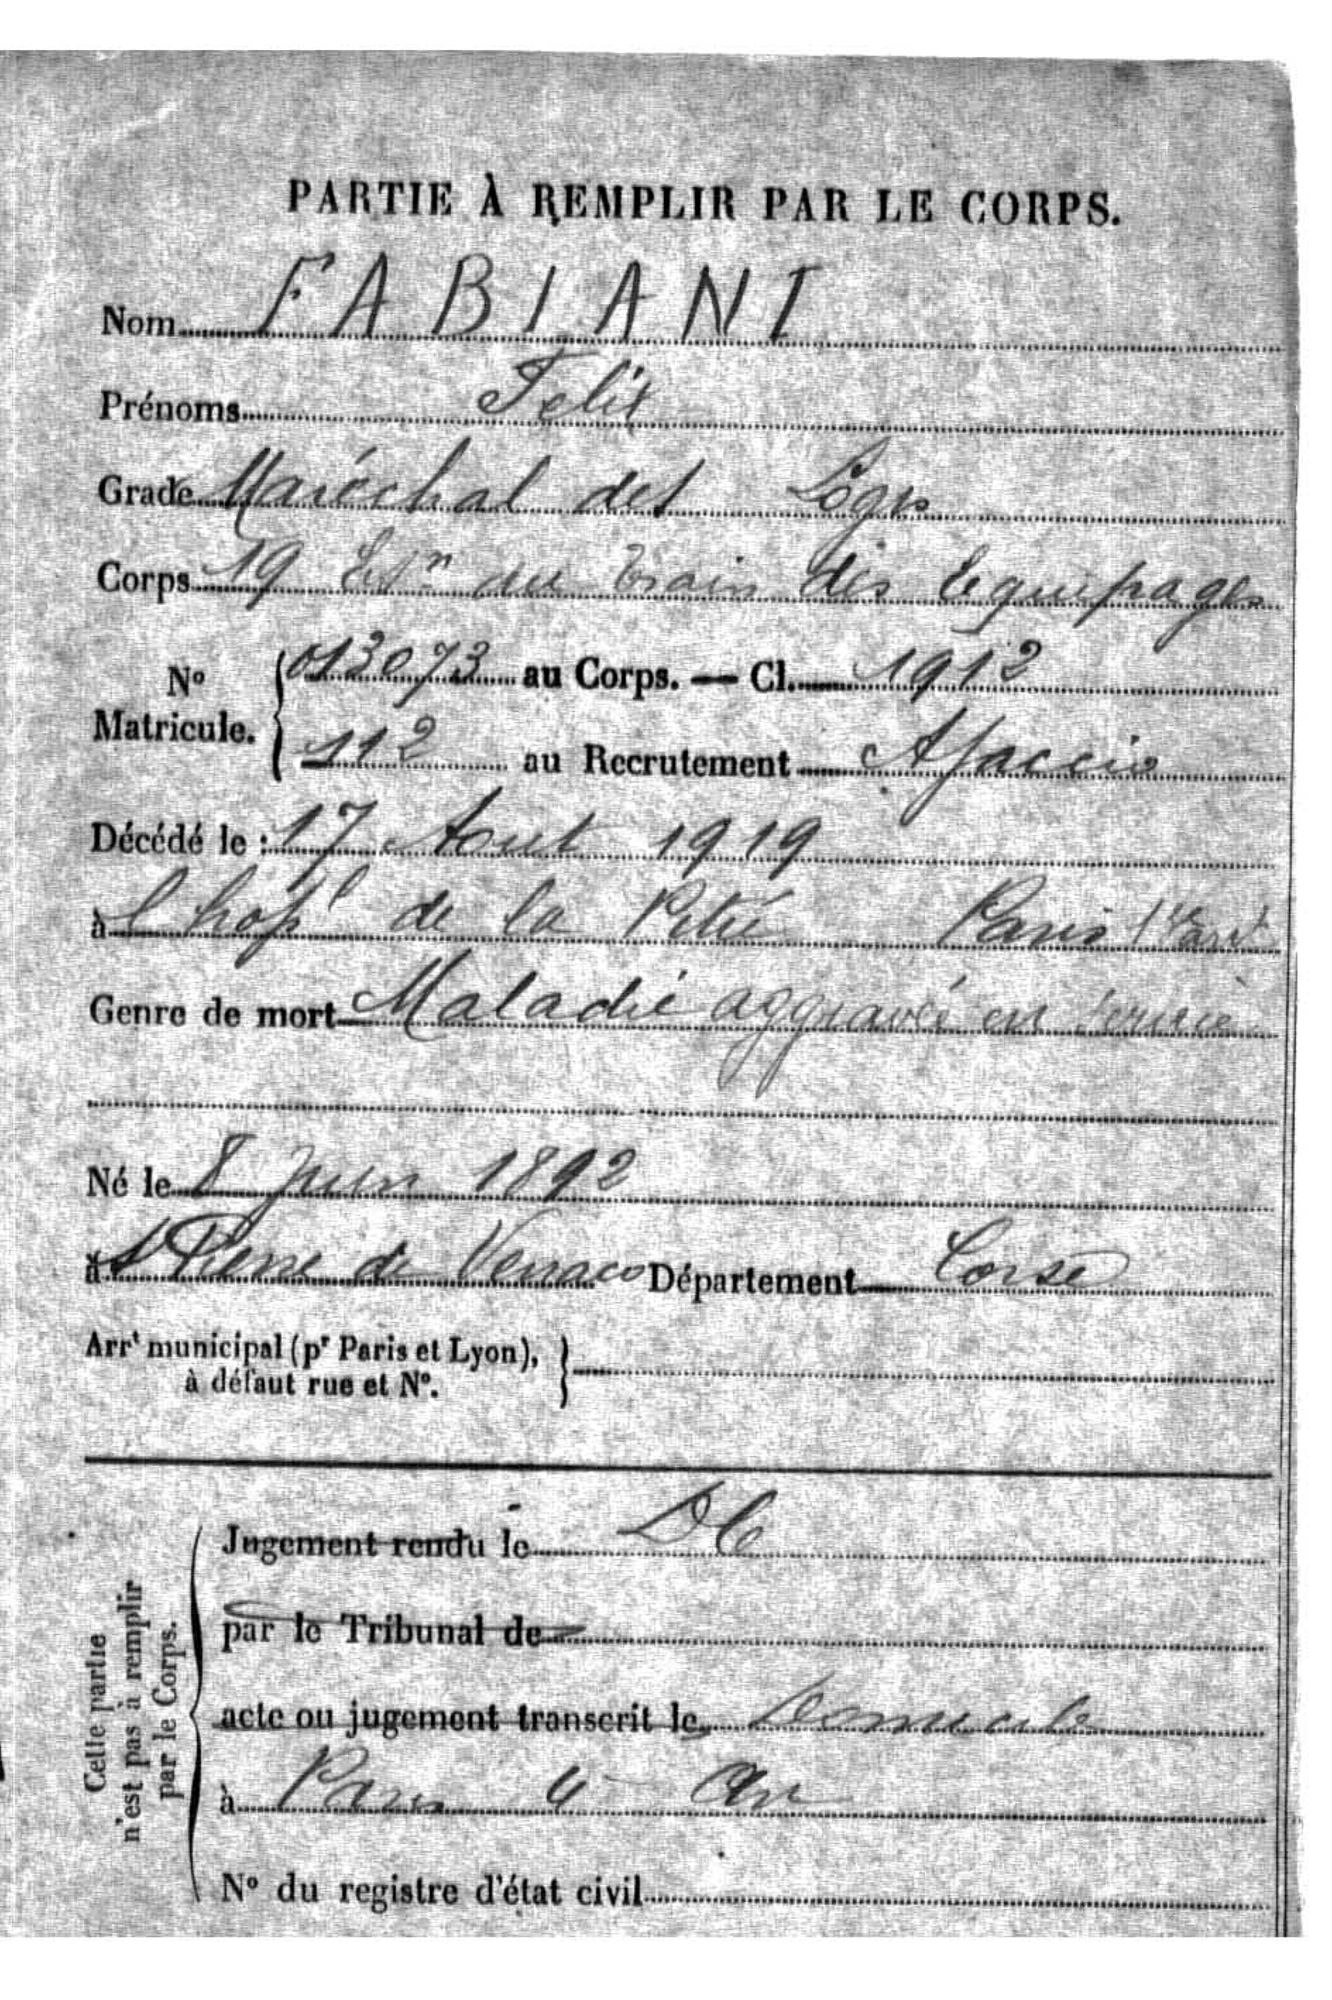 PARTIE À REMPLIR PAR LE CORPS.
Nom FABIANI
Prénoms Felix
Grade Maréchal des Logis
Corps 19 Esn du train des Equipages
No Matricule. 013073 au Corps. — Cl. 1912
112 au Recrutement Ajaccio
Décédé le : 17 Aout 1919
à l'hopl de la Pitié Paris
Genre de mort Maladie aggravée en service
Né le 8 Juin 1892
à St Pierre de Venaco Département Corse
Arrt municipal (pr Paris et Lyon),
à défaut rue et No.
Cette partie
n'est pas à remplir
par le Corps.
Jugement rendu le
par le Tribunal de
acte ou jugement transcrit le Domicile
à Paris 4 Ar
No du registre d'état civil